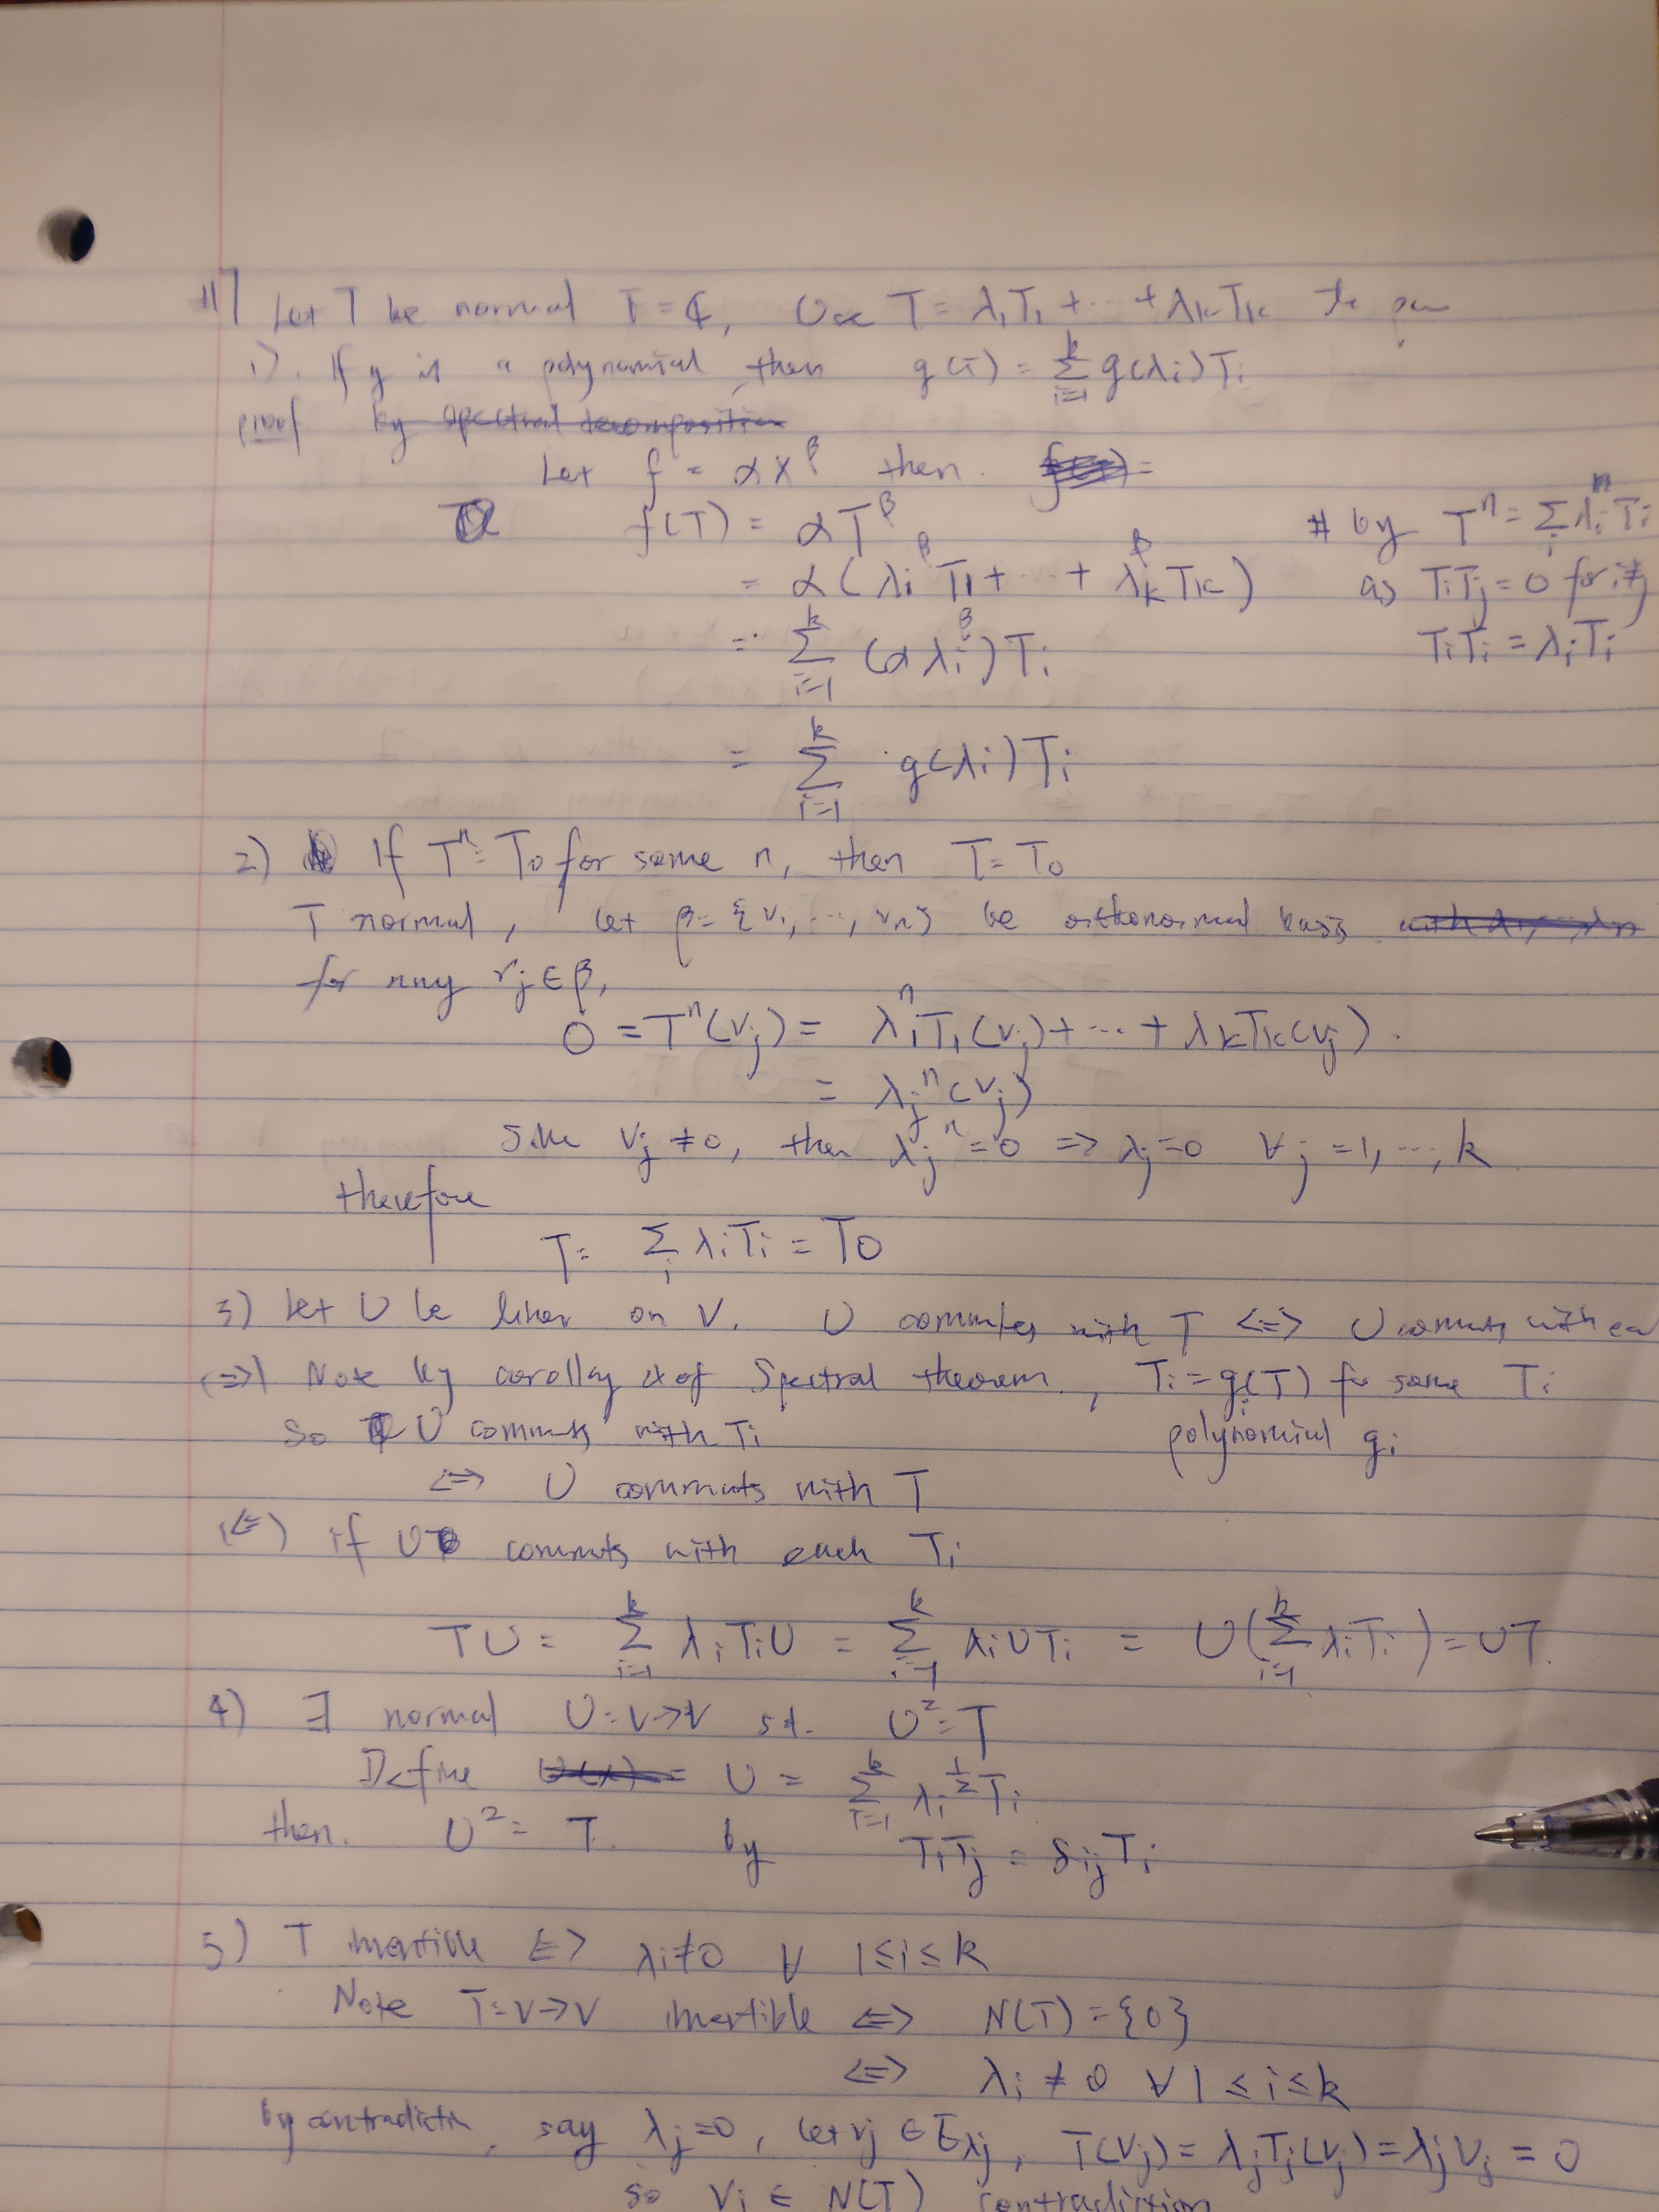 #7 Let T be normal F = ℂ, Use T = λ₁T₁ + ··· + λₖTₖ to
1). If g is a polynomial, then g(T) = Σᵢ₌₁ᵏ g(λᵢ)Tᵢ
proof by spectral decomposition
Let f = αx^β then. f(T) =
f(T) = αT^β # by Tⁿ = Σᵢ λᵢⁿTᵢ
= α(λᵢ^β T₁ + ··· + λₖ^β Tₖ) as TᵢTⱼ = 0 for i≠j
= Σᵢ₌₁ᵏ (αλᵢ^β)Tᵢ TᵢTᵢ = λᵢTᵢ
= Σᵢ₌₁ᵏ g(λᵢ)Tᵢ
2) If Tⁿ = T₀ for some n, then T = T₀
T normal, let β = {v₁, ···, vₙ} be orthonormal basis with λ₁, ···, λₙ
for any vⱼ ∈ β,
0 = Tⁿ(vⱼ) = λ₁ⁿT₁(vⱼ) + ··· + λₖTₖ(vⱼ).
= λⱼⁿ(vⱼ)
Since vⱼ ≠ 0, then λⱼⁿ = 0 ⇒ λⱼ = 0 ∀ j = 1, ···, k
therefore
T = Σᵢ λᵢTᵢ = T₀
3) Let U be linear on V. U commutes with T ⇔ U commuts with ea
(⇒) Note by corollary of Spectral theorem, Tᵢ = gᵢ(T) for some Tᵢ
So U commuts with Tᵢ polynomial gᵢ
⇔ U commuts with T
(⇐) if U commuts with each Tᵢ
TU = Σᵢ₌₁ᵏ λᵢTᵢU = Σᵢ₌₁ᵏ λᵢUTᵢ = U(Σᵢ₌₁ᵏ λᵢTᵢ) = UT.
4) ∃ normal U: V→V s.t. U² = T
Define U(x) = U = Σᵢ₌₁ᵏ λᵢ^½ Tᵢ
then. U² = T. by TᵢTⱼ = δᵢⱼTᵢ
5) T invertible ⇔ λᵢ≠0 ∀ 1≤i≤k
Note T: V→V invertible ⇔ N(T) = {0}
⇔ λᵢ ≠ 0 ∀ 1 ≤ i ≤ k
by contradiction, say λⱼ=0, let vⱼ ∈ E_λⱼ, T(vⱼ) = λⱼTⱼ(vⱼ) = λⱼvⱼ = 0
so vⱼ ∈ N(T) contradiction